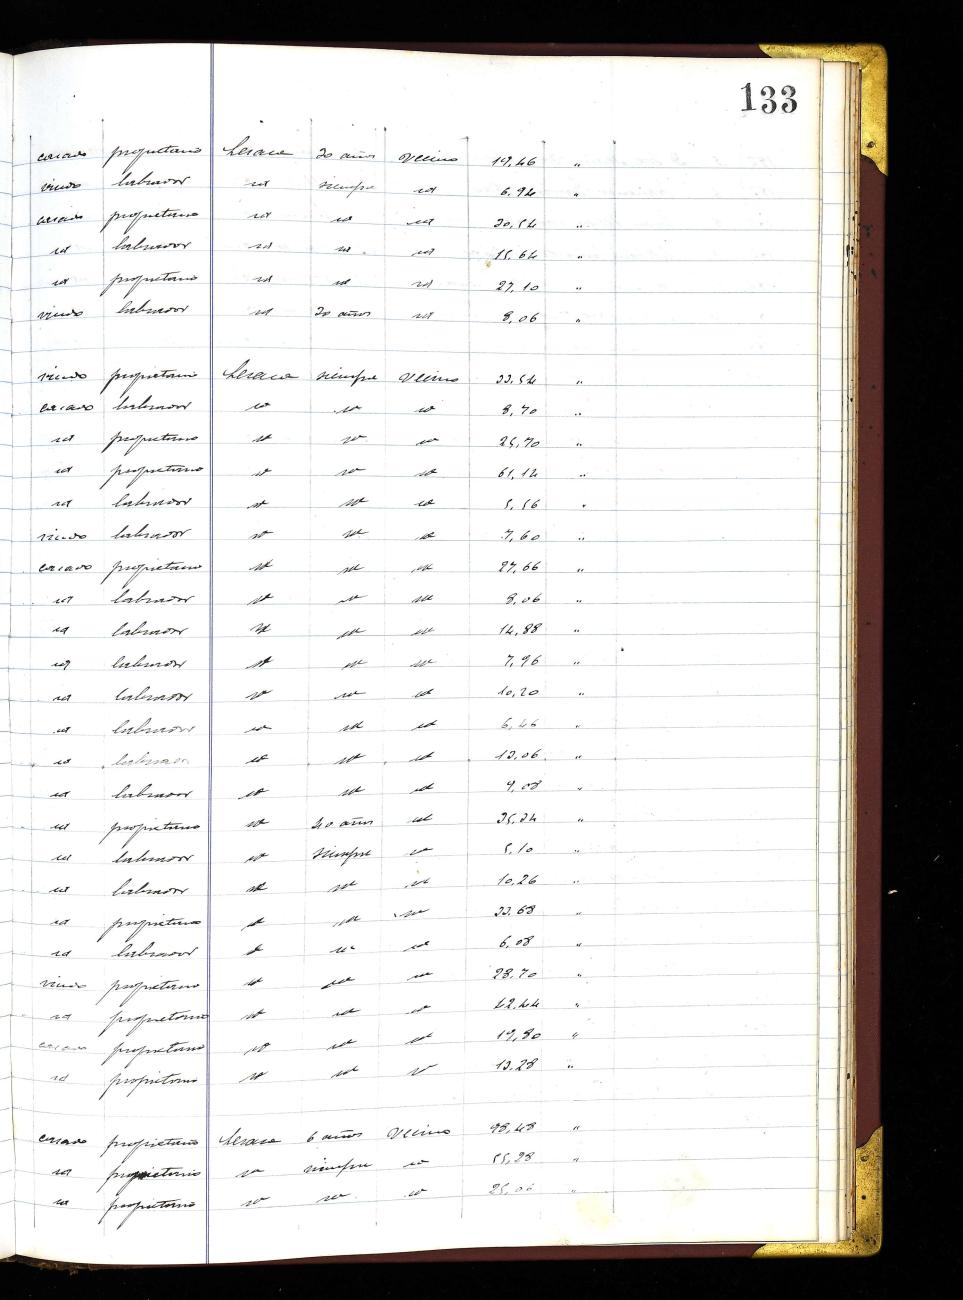 133
casado propietario Lesaca 20 años vecino 19,46 "
viudo labrador id siempre id 6,94 "
casado propietario id id id 30,54 "
id labrador id id id 15,64 "
id propietario id id id 27,10 "
viudo labrador id 30 años id 8,06 "
viudo propietario Lesaca siempre vecino 33,54 "
casado labrador id id id 8,70 "
id propietario id id id 25,70 "
id propietario id id id 61,12 "
id labrador id id id 5,56 "
viudo labrador id id id 7,60 "
casado propietario id id id 27,66 "
id labrador id id id 8,06 "
id labrador id id id 14,88 "
id labrador id id id 7,96 "
id labrador id id id 10,20 "
id labrador id id id 6,46 "
id labrador id id id 13,06 "
id labrador id id id 9,08 "
id propietario id 30 años id 35,34 "
id labrador id siempre id 5,10 "
id labrador id id id 10,26 "
id propietario id id id 33,68 "
id labrador id id id 6,08 "
viudo propietario id id id 28,70 "
id propietario id id id 42,44 "
casado propietario id id id 19,80 "
id propietario id id id 13,28 "
casado propietario Lesaca 6 años vecino 98,48 "
id propietario id siempre id 55,28 "
id propietario id id id 25,06 "